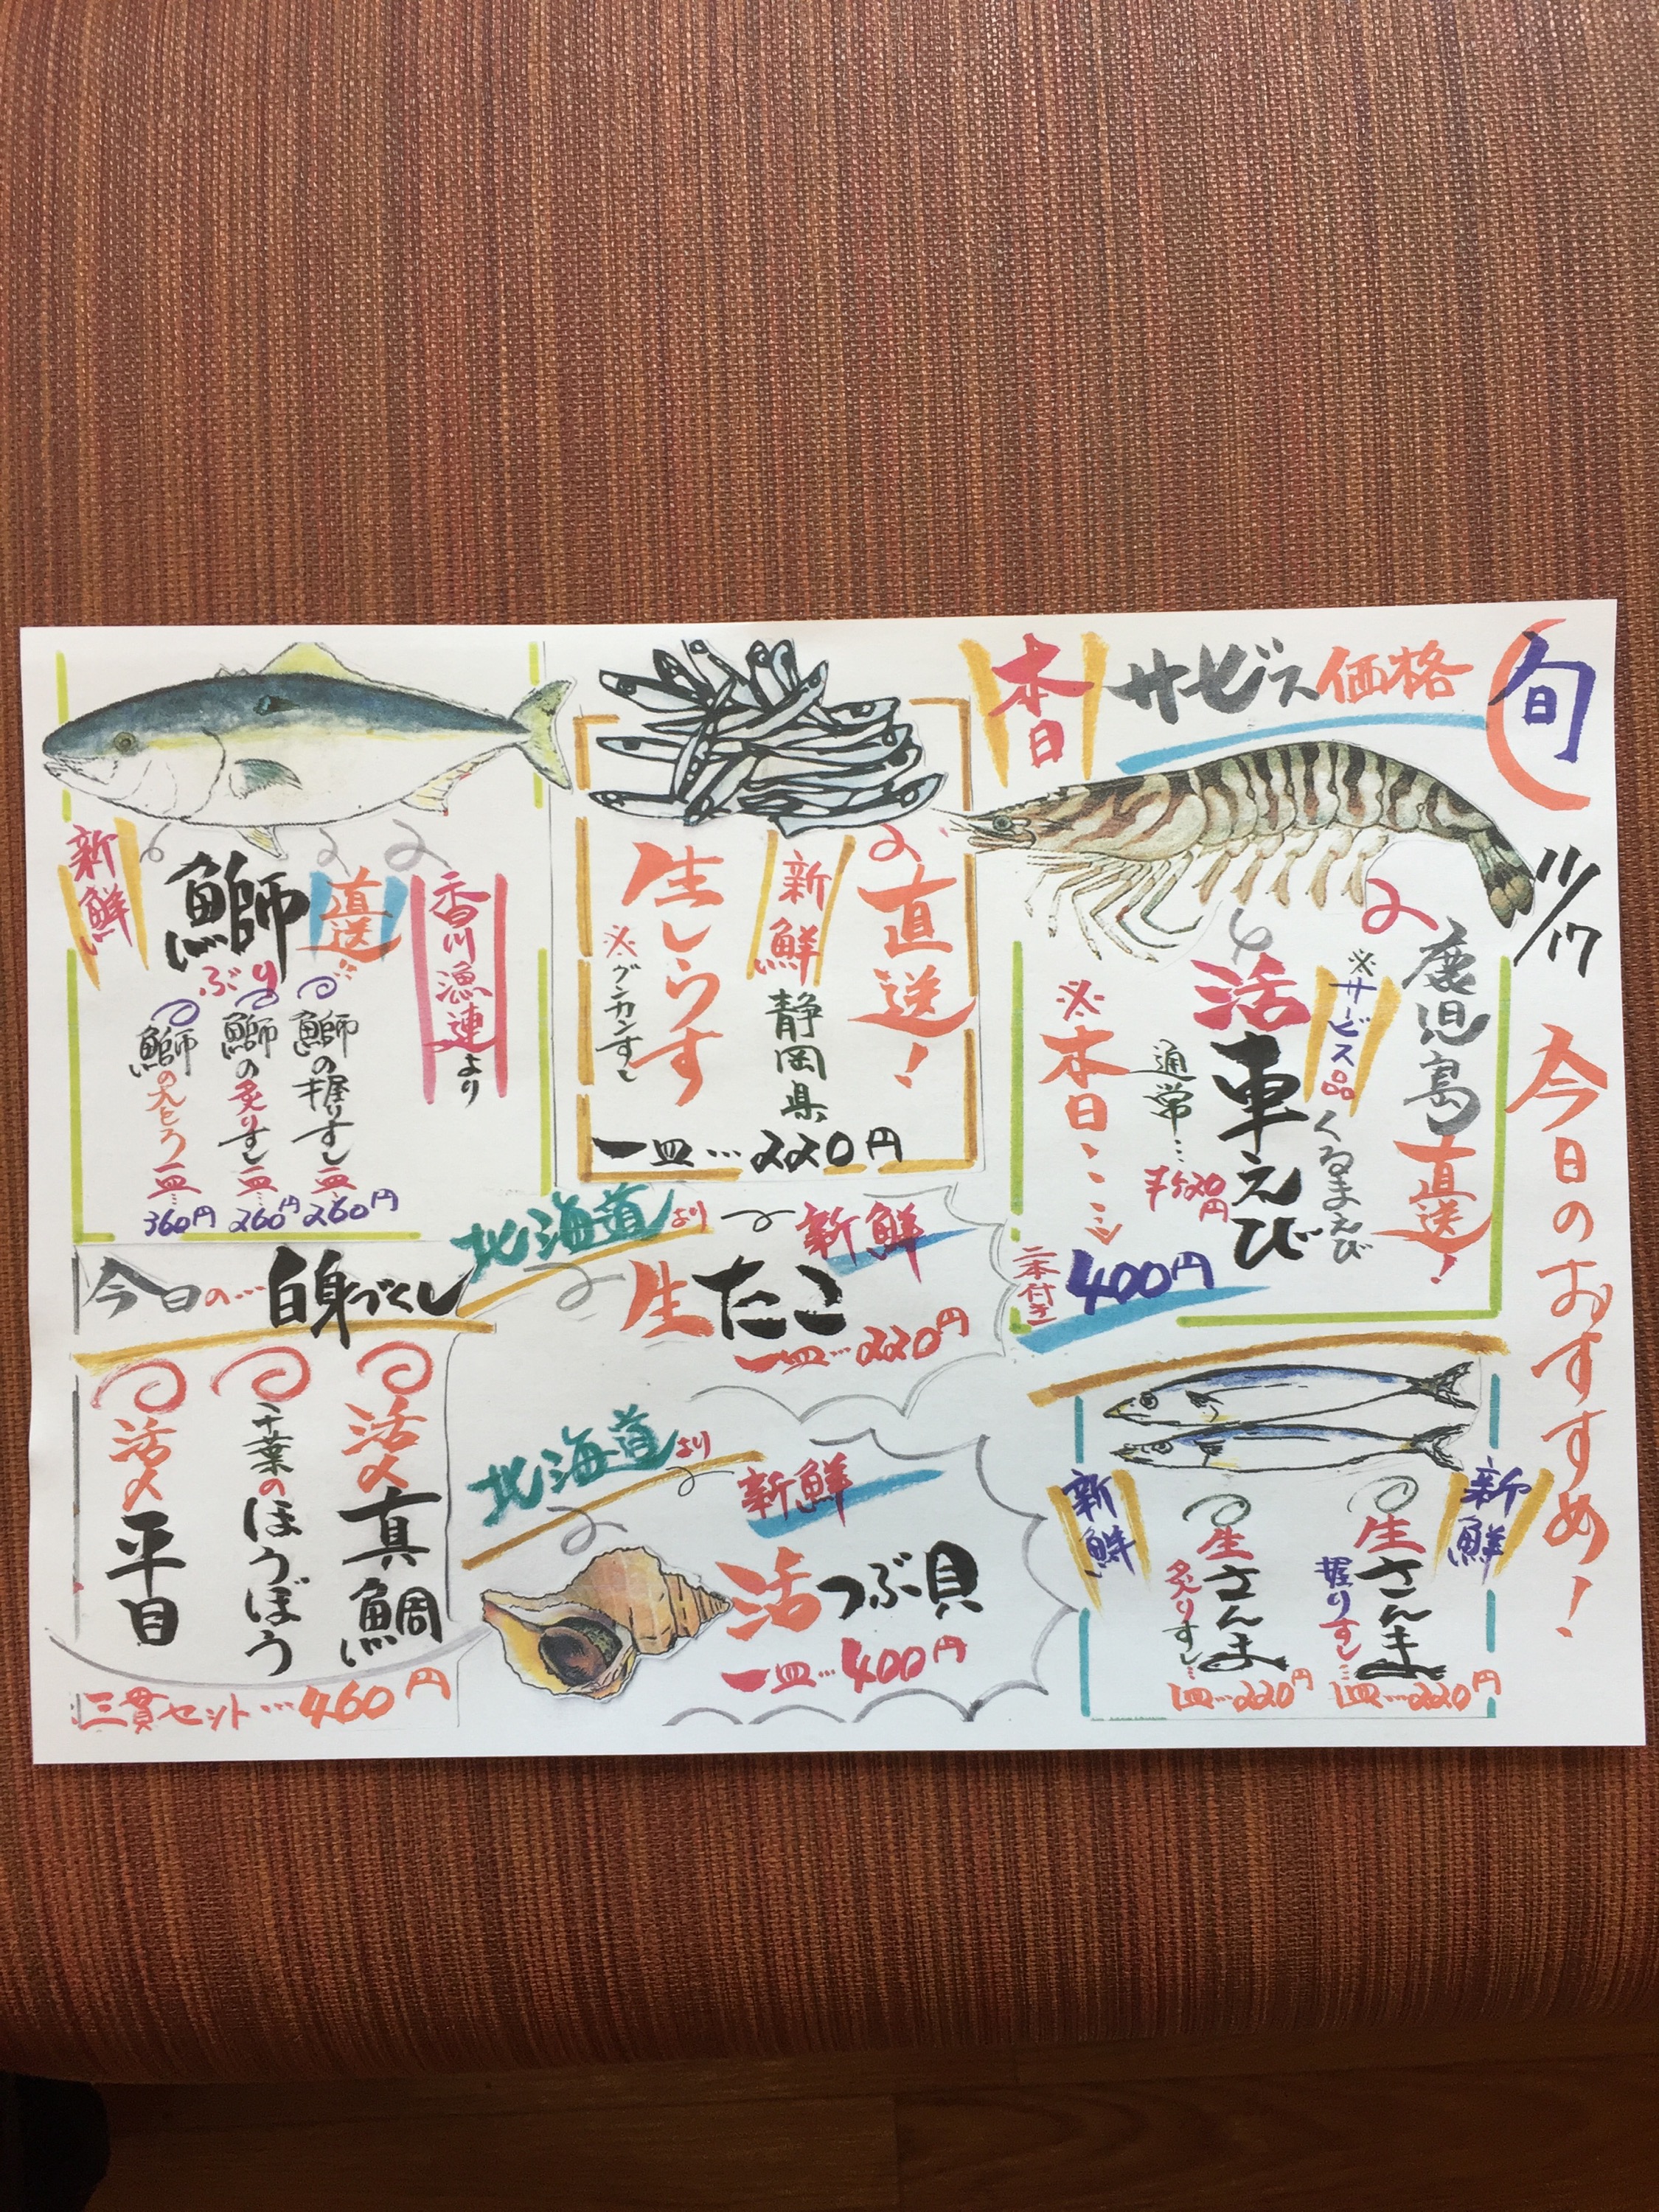 旬
11/17
今日のおすすめ!
本日
サービス価格
鹿児島
直送!
※サービス品
くるまえび
活
車えび
通常…
520円
※本日…
二本付き
400円
直送!
新鮮
静岡県
生しらす
※グンカンすし
一皿…220円
香川漁連より
直送!!
鰤
ぶり
新鮮
鰤の握りすし
一皿…
260円
鰤の炙りすし
一皿…
260円
鰤の大とろ
一皿…
360円
北海道より
新鮮
生たこ
一皿…220円
北海道より
新鮮
活つぶ貝
一皿…400円
新鮮
生さんま
握りすし…
一皿…220円
生さんま
炙りすし…
一皿…220円
新鮮
今日の…白身づくし
活〆真鯛
千葉のほうぼう
活〆平目
三貫セット…460円